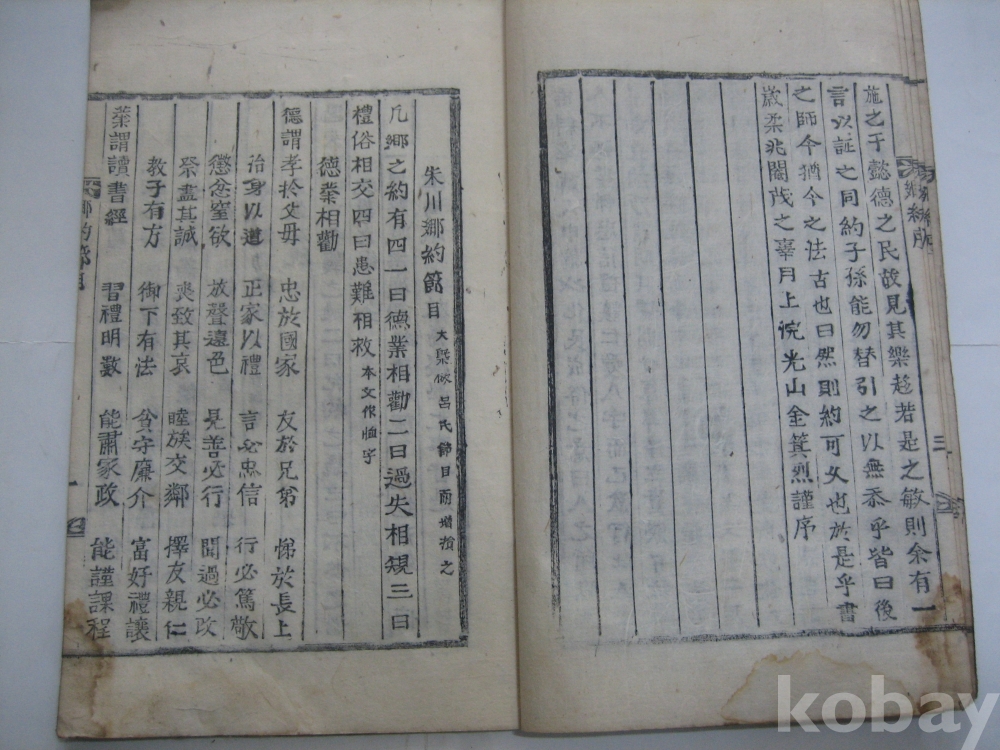 施之于懿德之民故見其樂趍若是之敏則余有一
言以証之同約子孫能勿替引之以無忝乎皆曰後
之師今猶今之法古也曰然則約可久也於是乎書
歲柔兆閹茂之辜月上浣光山金箕烈謹序
鄕約序
三
朱川鄕約節目 大槩倣呂氏節目而增損之
凡鄕之約有四一曰德業相勸二曰過失相規三曰
禮俗相交四曰患難相救 本文作恤字
德業相勸
德謂孝於父母 忠於國家 友於兄弟 悌於長上
治身以道 正家以禮 言必忠信 行必篤敬
懲忿窒欲 放聲遠色 見善必行 聞過必改
祭盡其誠 喪致其哀 睦族交鄰 擇友親仁
敎子有方 御下有法 貧守廉介 富好禮讓
業謂讀書經 習禮明數 能肅家政 能謹課程
鄕約節目
一
kobay